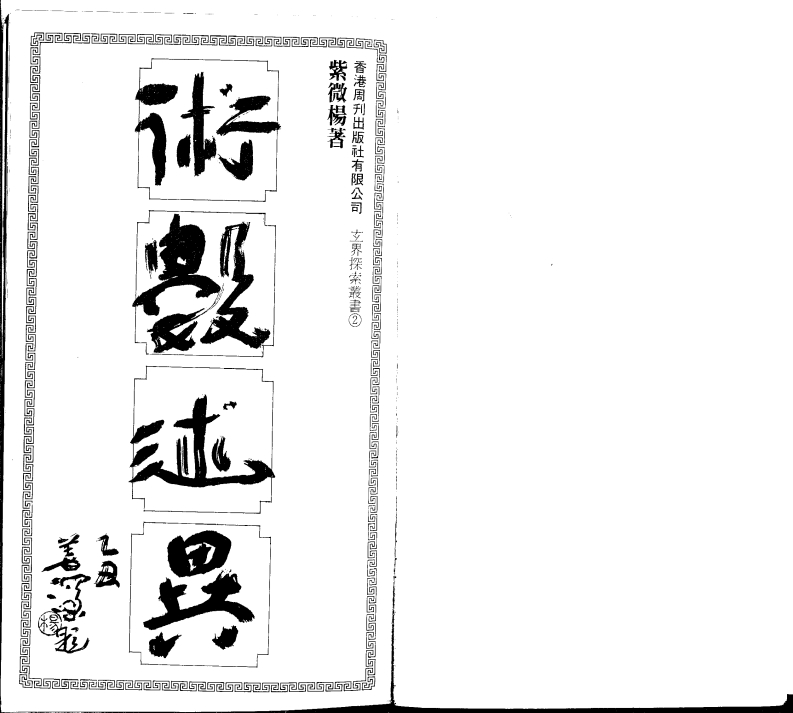 香港周刊出版社有限公司 玄界探索叢書②
紫微楊著
術數述異
乙丑
題
楊